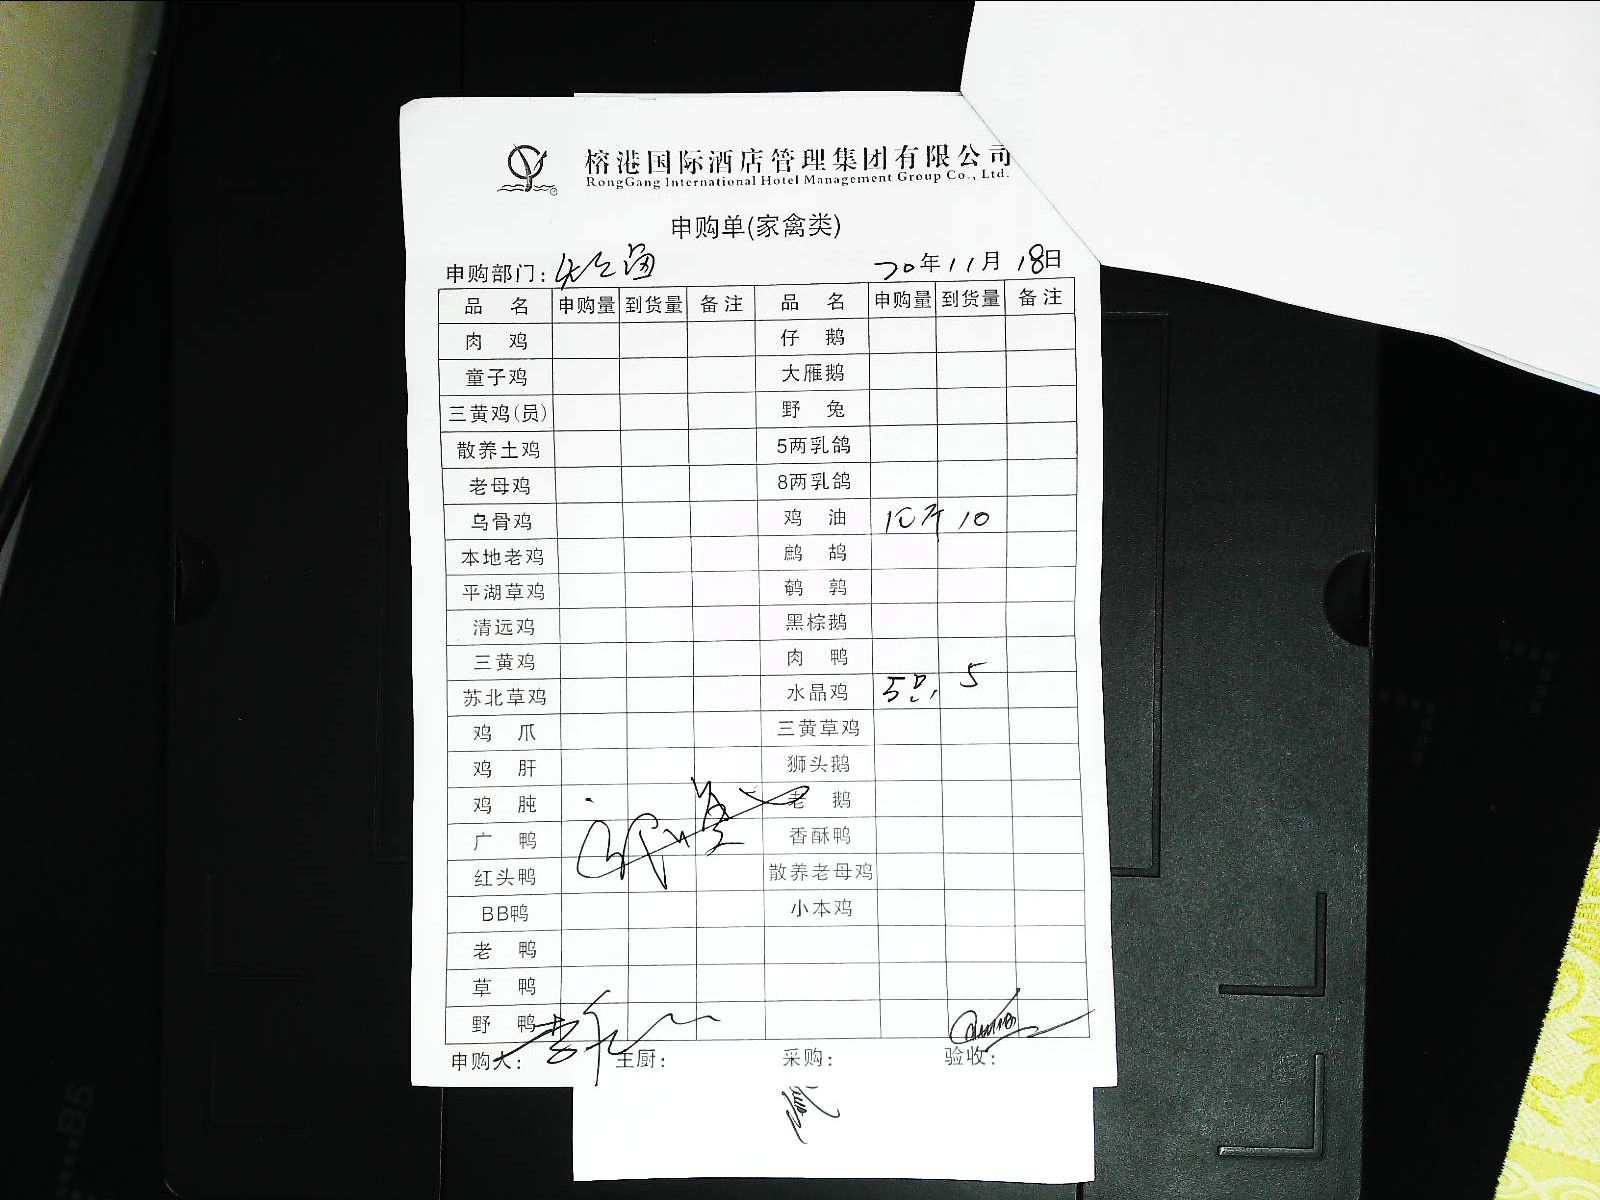 榕港国际酒店管理集团有限公司
RongGang International Hotel Management Group Co., Ltd.
申购单(家禽类)
申购部门: 20年11月18日
品名 申购量 到货量 备注 品名 申购量 到货量 备注
肉鸡 仔鹅
童子鸡 大雁鹅
三黄鸡(员) 野兔
散养土鸡 5两乳鸽
老母鸡 8两乳鸽
乌骨鸡 鸡油 10斤 10
本地老鸡 鹧鸪
平湖草鸡 鹌鹑
清远鸡 黑棕鹅
三黄鸡 肉鸭
苏北草鸡 水晶鸡 5只 5
鸡爪 三黄草鸡
鸡肝 狮头鹅
鸡肫 老鹅
广鸭 香酥鸭
红头鸭 散养老母鸡
BB鸭 小本鸡
老鸭
草鸭
野鸭
申购人: 主厨: 采购: 验收: